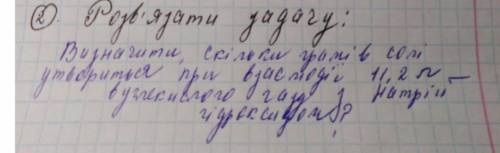 ② Розв'язати задачу:
Визначити, скільки грамів солі
утвориться при взаємодії 11,2 л
вуглекислого газу з натрій —
гідроксидом?